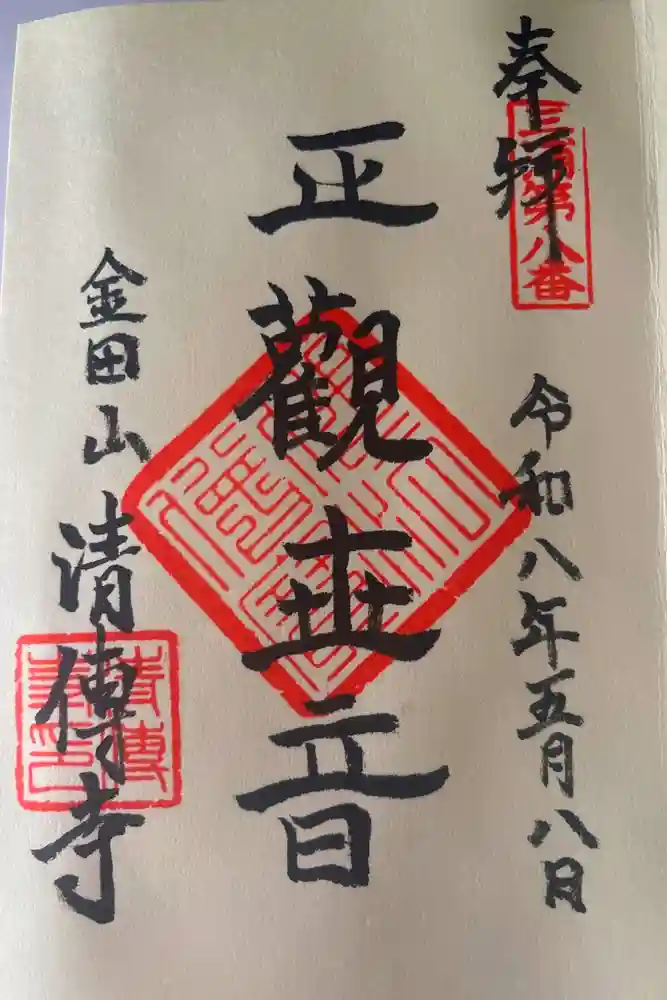 奉拝
三浦第八番
令和八年五月八日
正觀世音
金田山
清傳寺